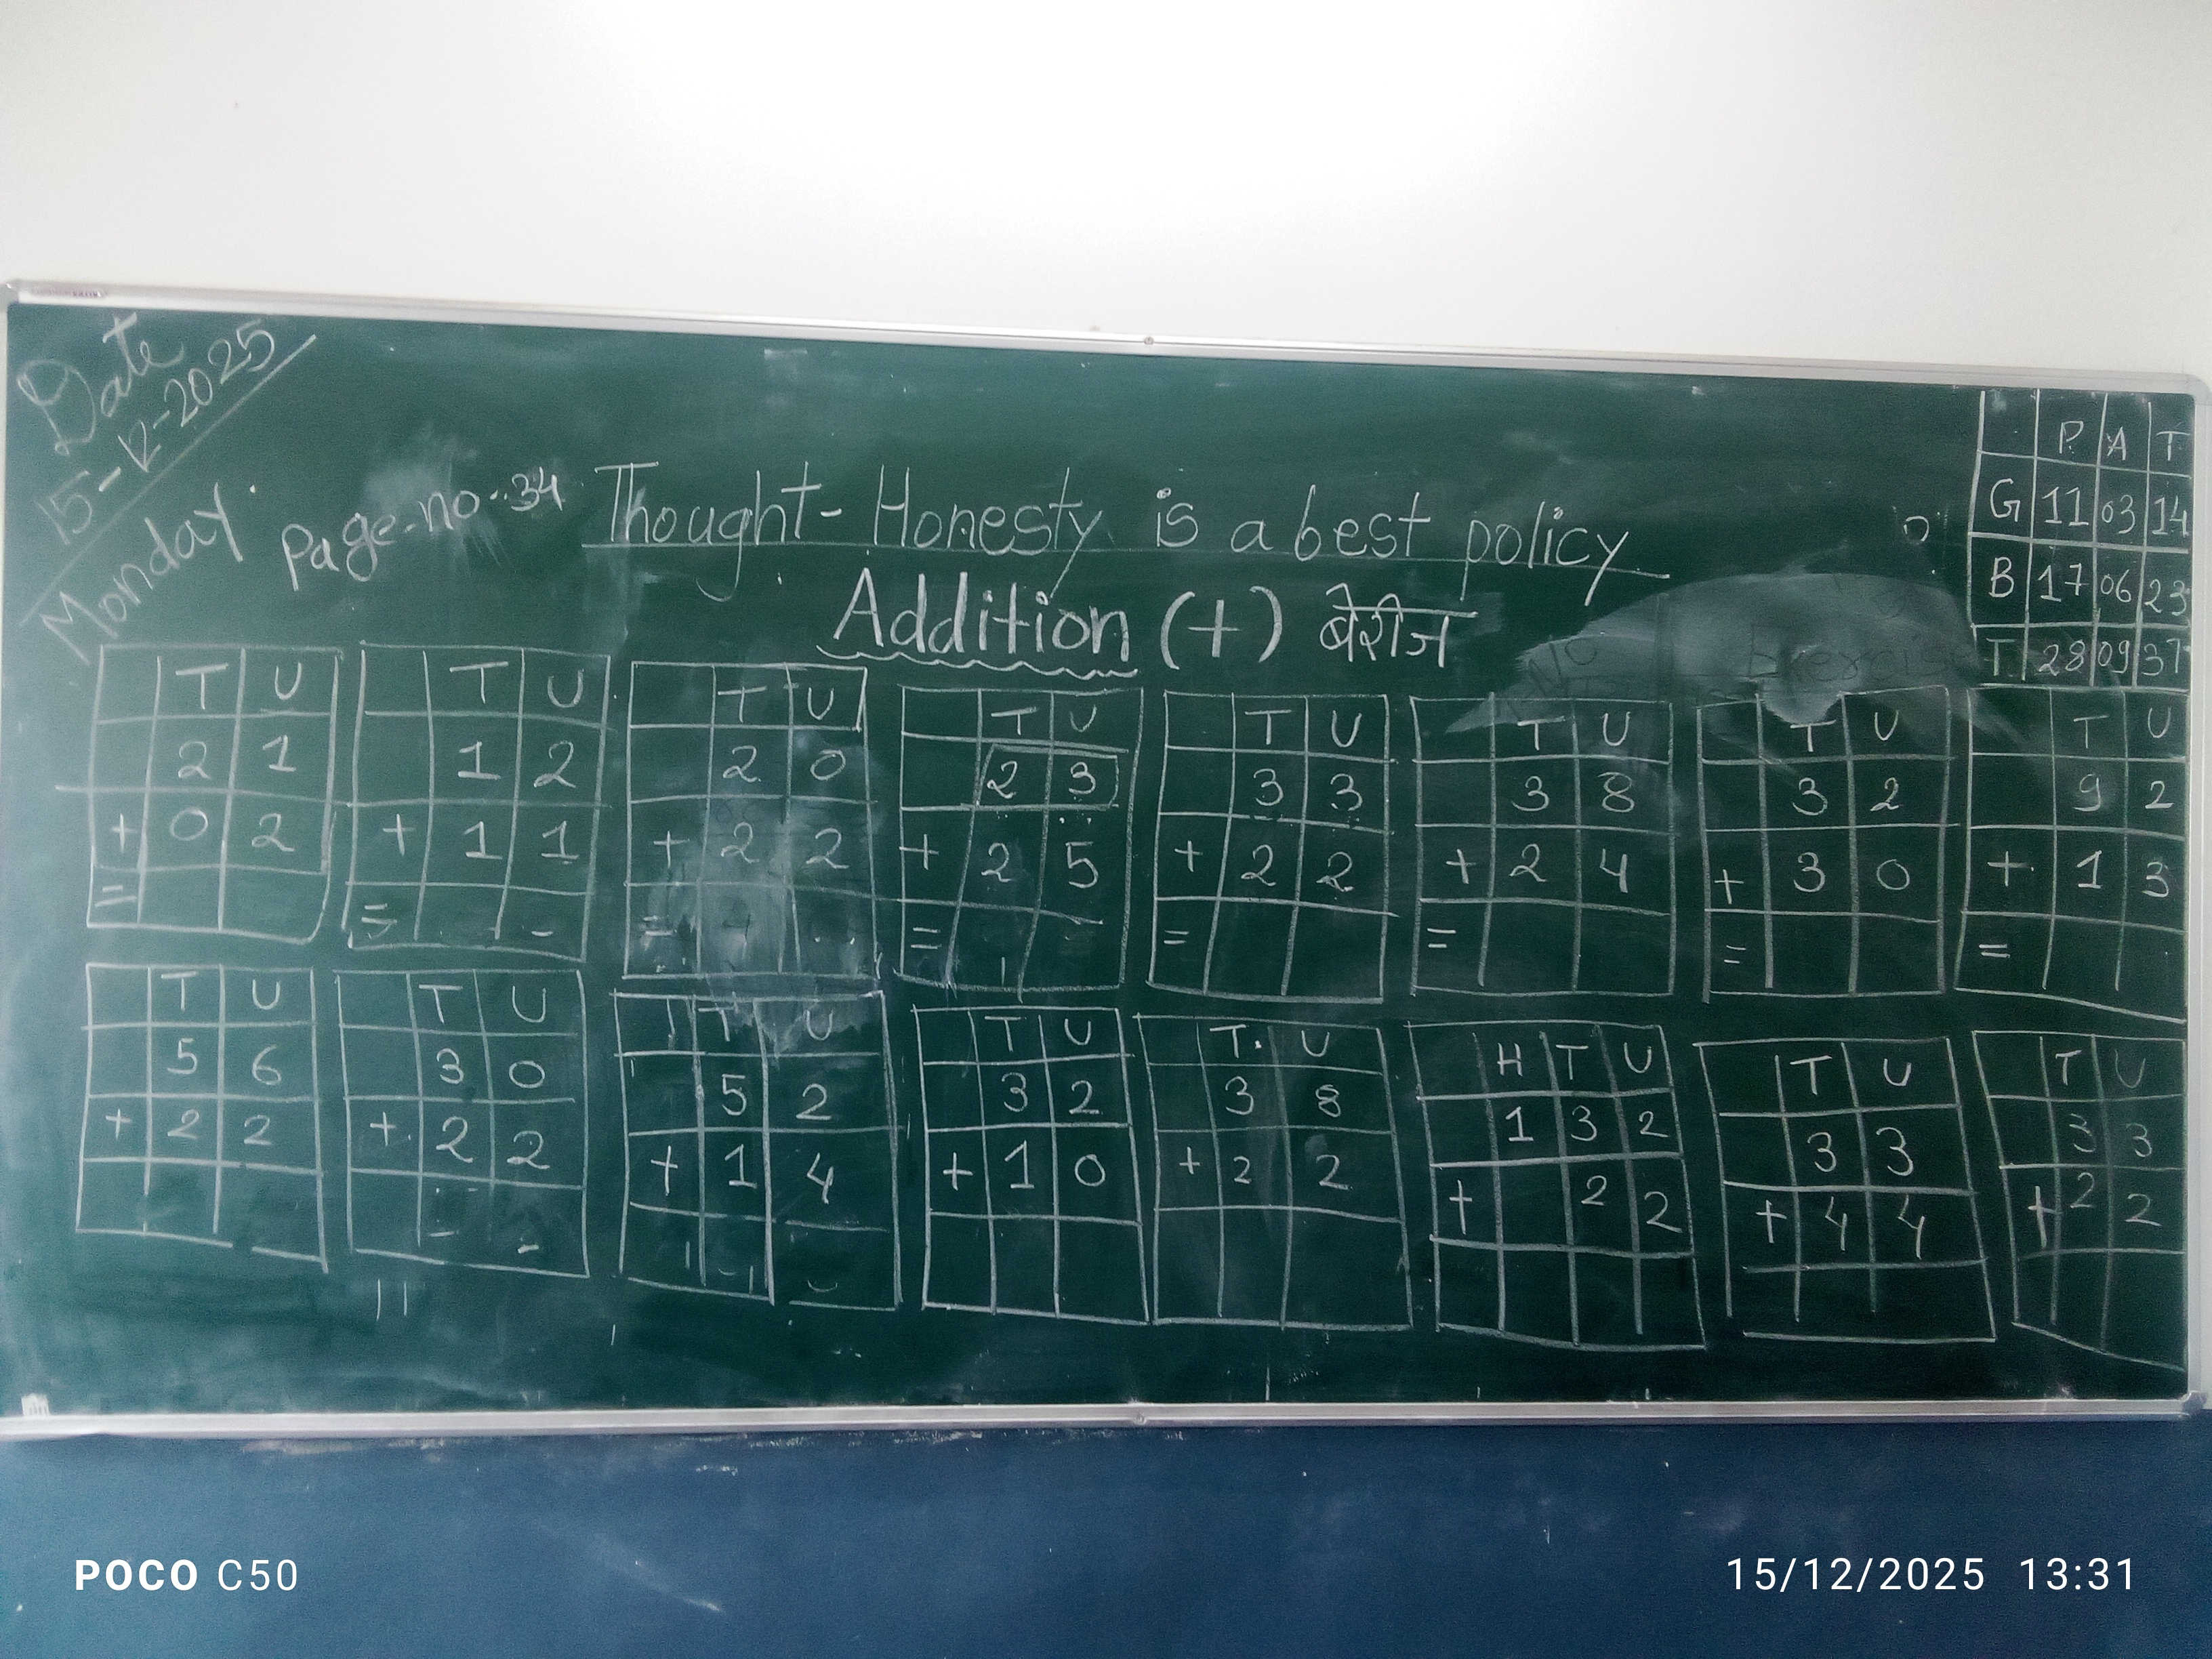 Date
15-12-2025
Monday
page-no-34
Thought- Honesty is a best policy
Addition (+) बेरीज
P A T
G 11 03 14
B 17 06 23
T 28 09 37
T U
2 1
+ 0 2
=
T U
1 2
+ 1 1
=
T U
2 0
+ 2 2
= 4
T U
2 3
+ 2 5
=
T U
3 3
+ 2 2
=
T U
3 8
+ 2 4
=
T U
3 2
+ 3 0
=
T U
9 2
+ 1 3
=
T U
5 6
+ 2 2
T U
3 0
+ 2 2
T U
5 2
+ 1 4
T U
3 2
+ 1 0
T U
3 8
+ 2 2
H T U
1 3 2
+ 2 2
T U
3 3
+ 4 4
T U
3 3
+ 2 2
POCO C50
15/12/2025 13:31